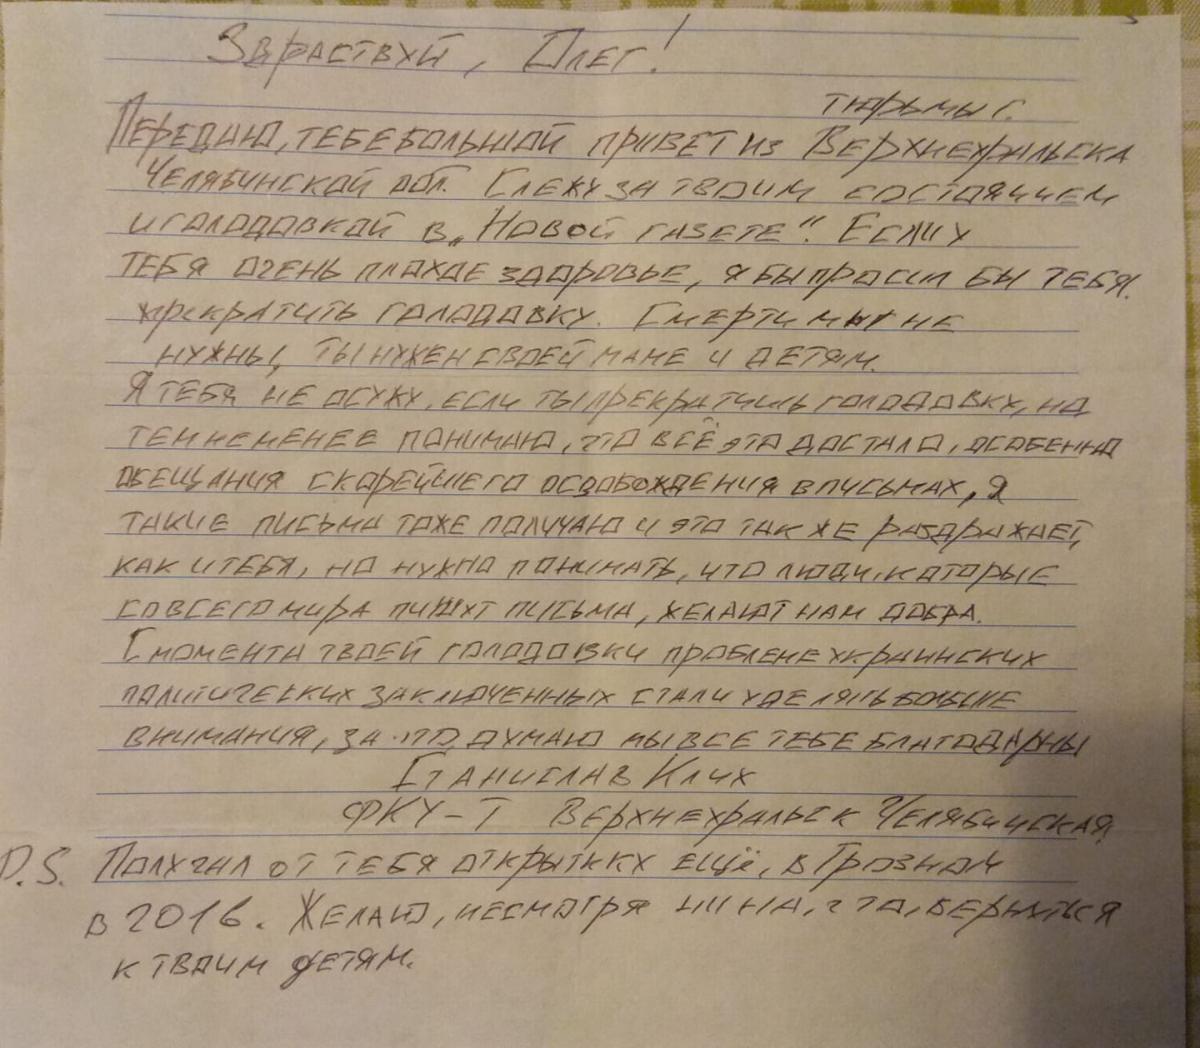 Здраствуй, Олег!
тюрьмы г.
Передаю, тебе большой привет из Верхнеуральска
Челябинской обл. Слежу за твоим состоянием
и голодовкой в „Новой газете“. Если у
тебя очень плохое здоровье, я бы просил бы тебя.
прекратить голодовку. Смерти мы не
нужны, ты нужен своей маме и детям.
Я тебя не осужу, если ты прекратишь голодовку, но
тем не менее понимаю, что всё это достало, особенно
обещания скорейшего освобождения в письмах, я
такие письма тоже получаю и это так же раздражает,
как и тебя, но нужно понимать, что люди, которые
со всего мира пишут письма, желают нам добра.
С момента твоей голодовки проблеме украинских
политических заключенных стали уделять больше
внимания, за что, думаю мы все тебе благодарны
Станислав Клих
ФКУ-Т Верхнеуральск Челябинская
P.S. Получил от тебя открытку ещё, в Грозном
в 2016. Желаю, несмотря ни на, что, вернуться
к твоим детям.